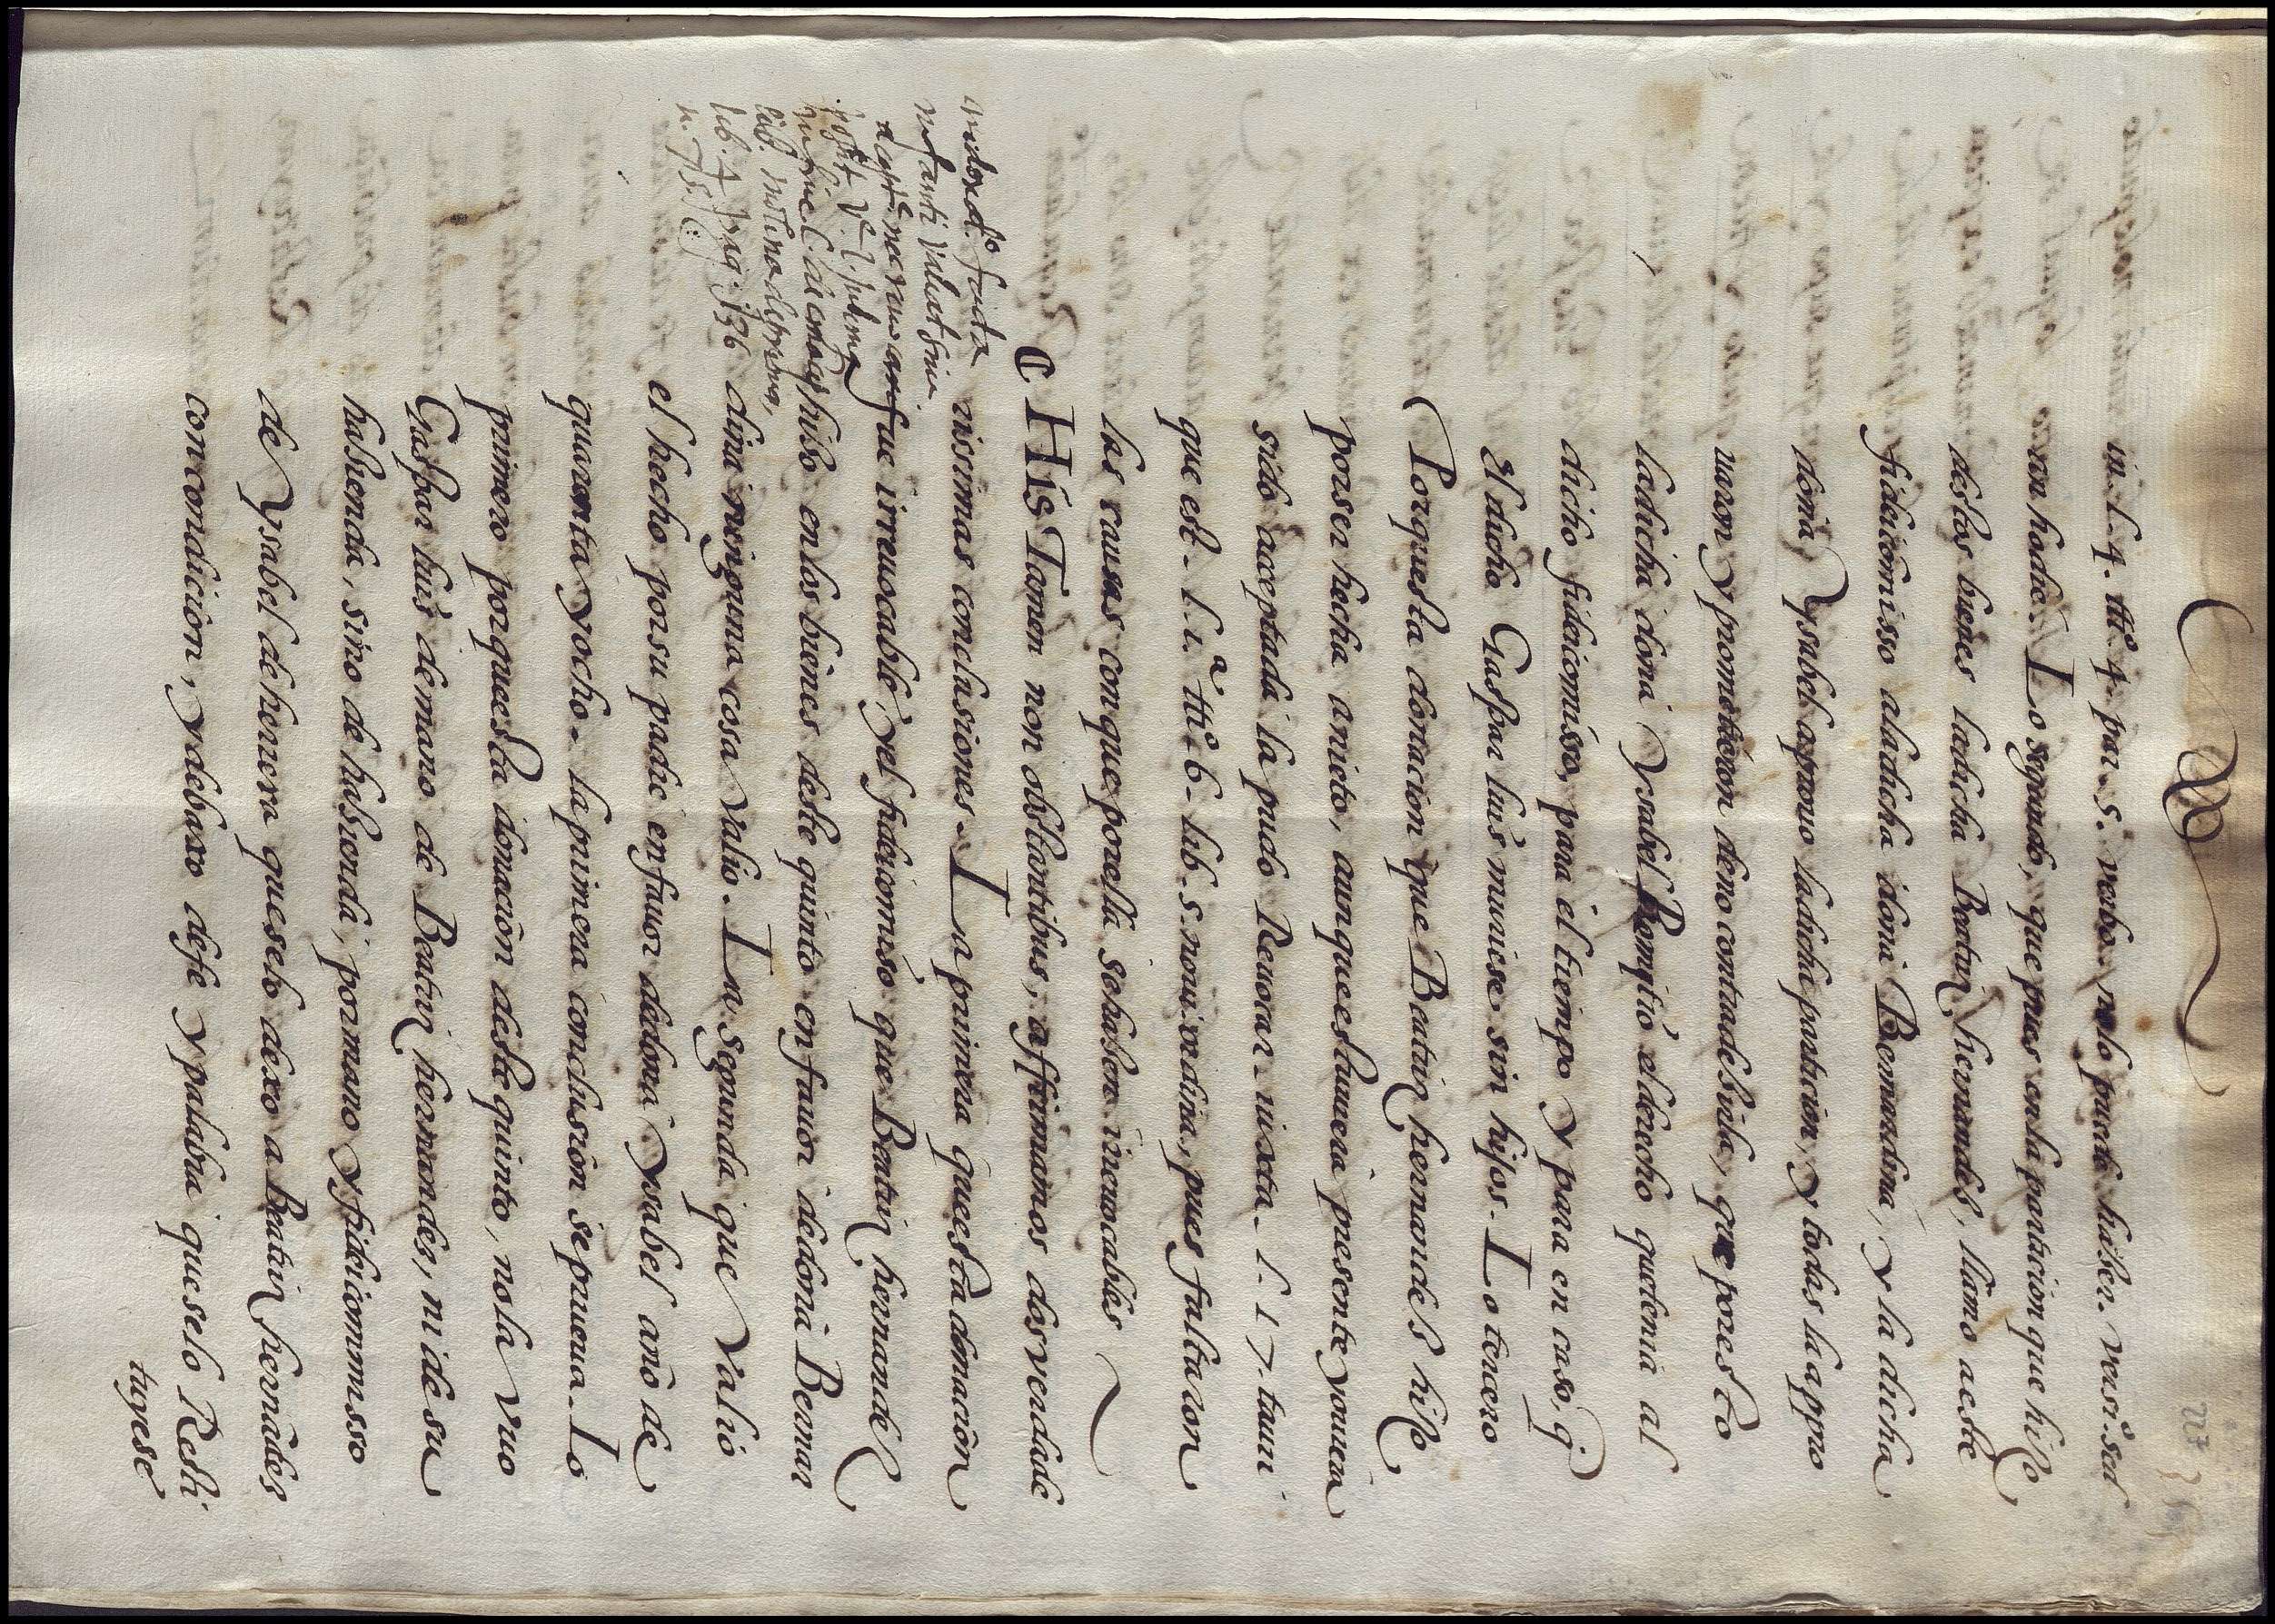 in. l. 4. ttº. 4. par. 5. verbo. nolo puede haser. versi.º sed
oran hodie. Lo segundo, que pues en la particion que hiso
destos bienes la dicha Beatriz hernandes, llamo a este
fideicomisso a la dicha doña Bernardina, y la dicha
doña Ysabel aprovo la dicha particion, y todas la appro
varon y prometieron de no contradesirla, que por esto
la dicha doña Ysabel Remitio el derecho que tenia al
dicho fideicomisso, para el tiempo y para en caso, q̃
el dicho Gaspar luis muriese sin hijos. Lo tercero
Porque esta donacion que Beatriz hernandes hiso
por ser hecha a nieto, aunque estuviera presente y ouiera
sido acceptada la pudo Reuocar iuxta. l. 17. tauri
que est. l. 1.ª ttº. 6. lib. 5. noui. ordin. pues faltaron
las causas con que por ella se hasen irreuocables
His Tamen non obstantibus, affirmamos dos verdade
rissimas conclusiones. La primera que esta donacion
fue irreuocable, y el fideicomiso que Beatriz hernandes
hiso en los bienes deste quinto en fauor de doña Bernar
dina ninguna cosa valio. La segunda que valio
el hecho por su padre en fauor de doña ysabel año de
quarenta y ocho. la primera conclusion se prueua. Lo
primero porque esta donacion deste quinto, no la vuo
Gaspar luis de mano de Beatriz hernandes, ni de su
hasienda, sino de hasienda, por mano y fideicommisso
de ysabel de herrera que se lo dexo a Beatriz hernãdes
con condicion, y debaxo de fe y palabra que se lo Resti
tuyese
infanti valeat sine
lib. 4. pag. 196
n. 75.